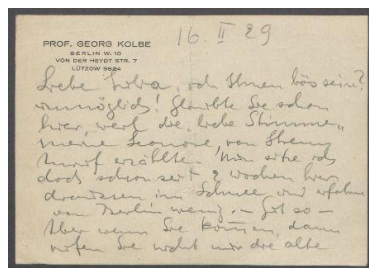 PROF. GEORG KOLBE
BERLIN W. 10
VON DER HEYDT STR. 7
LÜTZOW 9624
16. II 29
Liebe ich Ihnen bös sein?
unmöglich! Glaubte Sie schon
hier, weil die liebe Stimme
meine Leonore, von Ihrem
Anruf erzählte. Nun sitze ich
doch schon seit 2 Wochen hier
draussen im Schnee und erfahre
von Berlin wenig. – Gut so –
Aber wenn Sie können, dann
rufen Sie nicht nur die alte